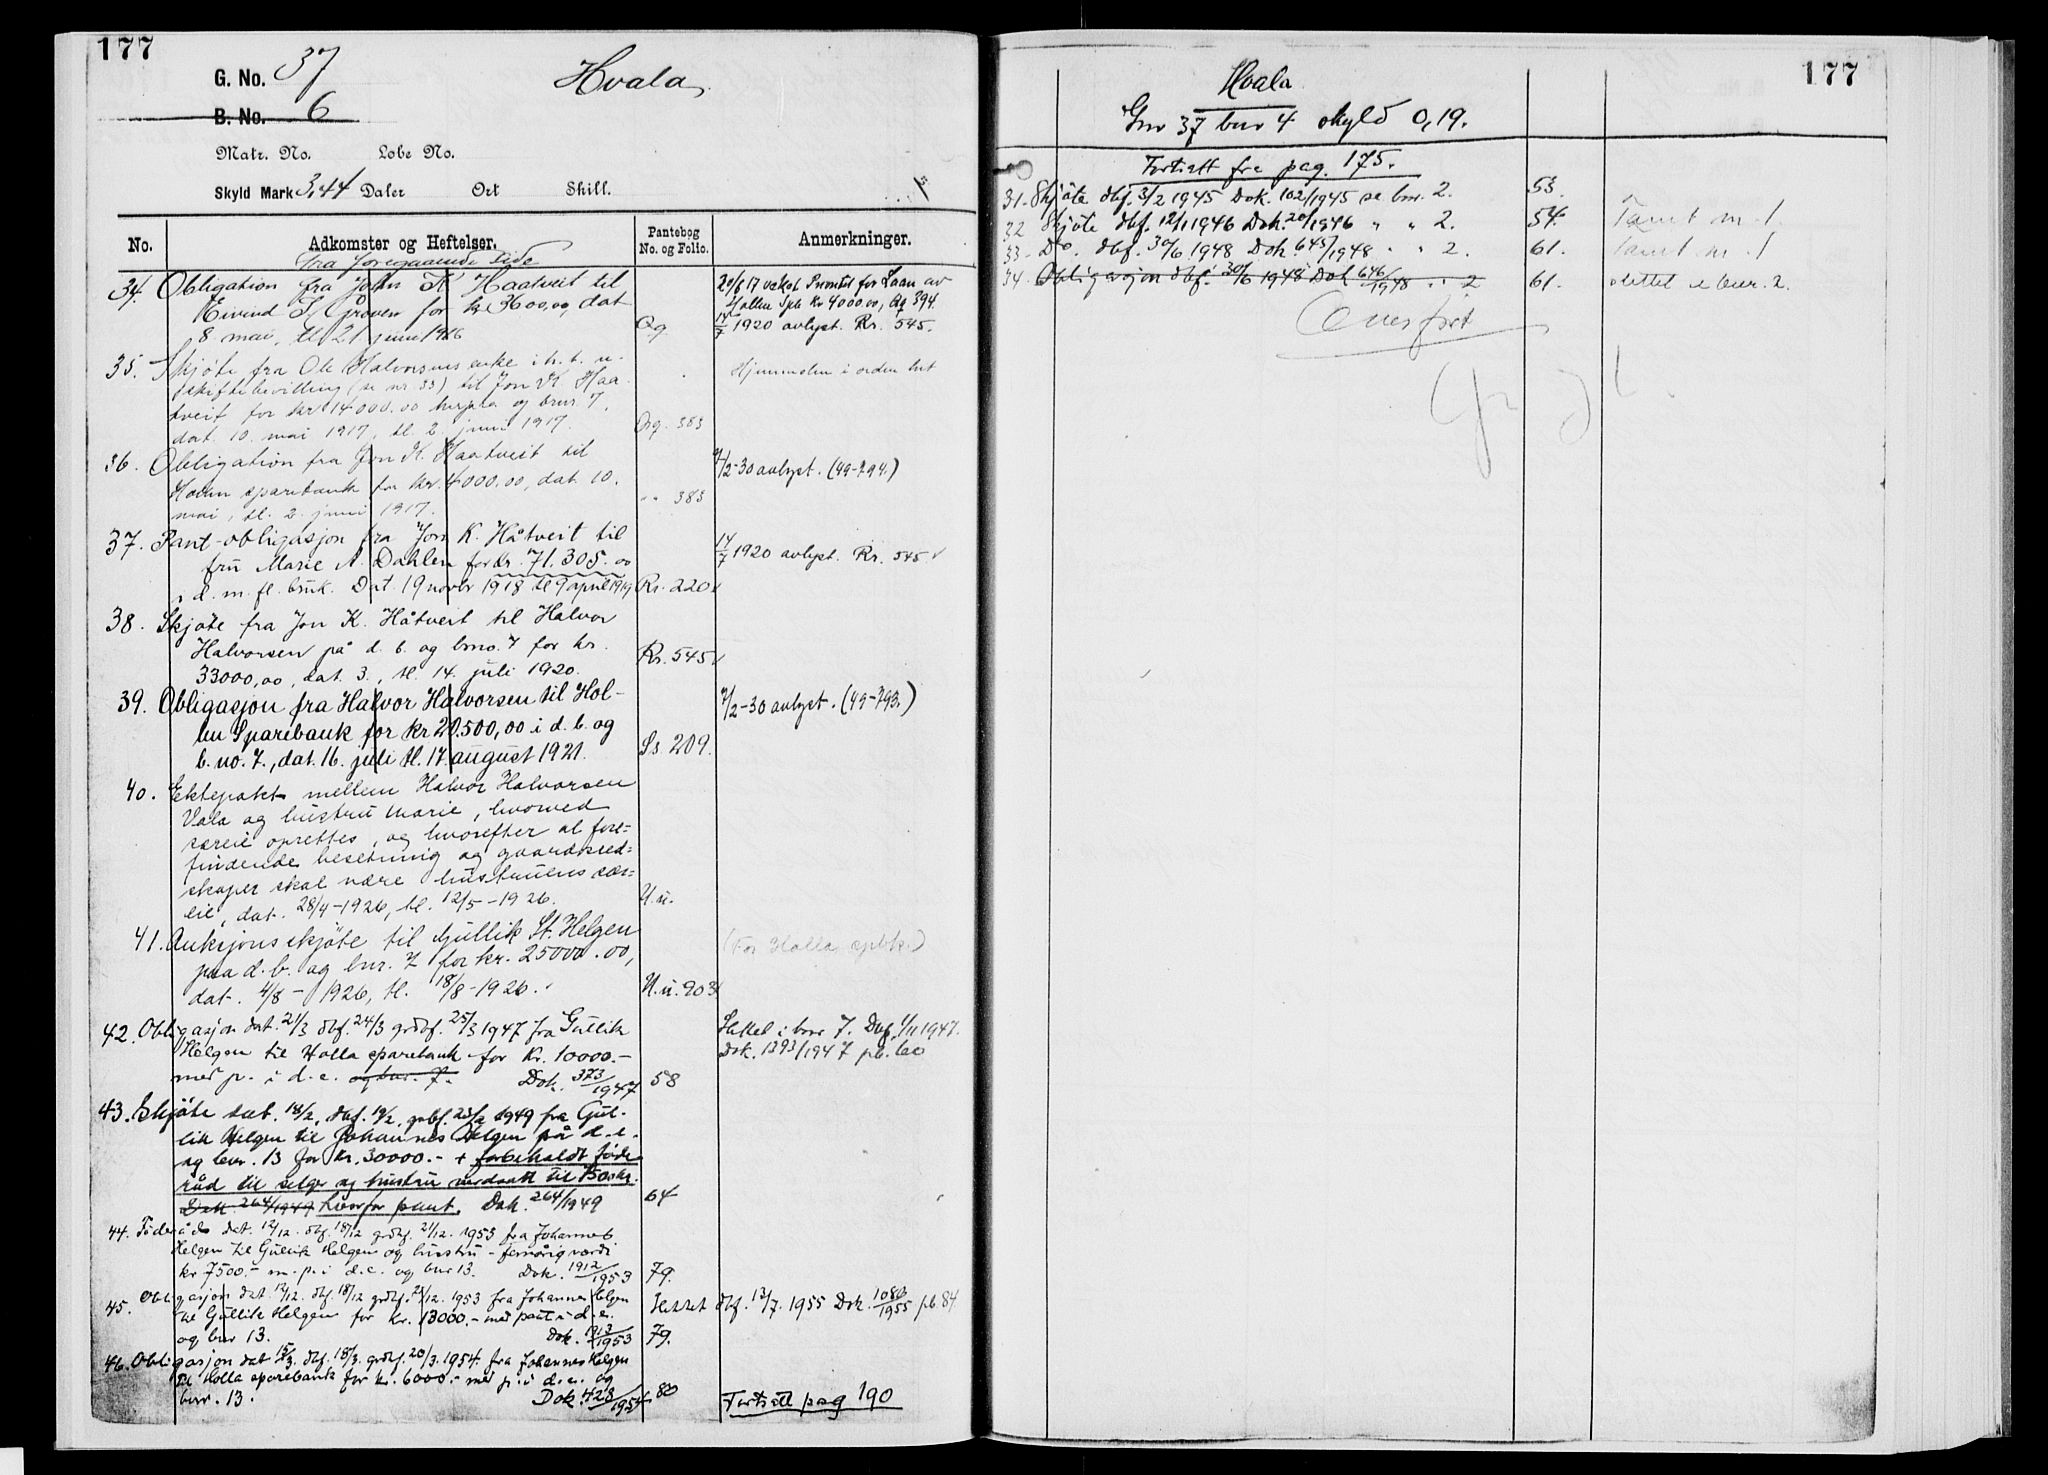 177
G. No. 37
Hvala
B. No. 6
Matr. No. Løbe No.
Skyld Mark 3,44 Daler Ort Skill.
No.
Adkomster og Heftelser.
Pantebog
No. og Folio.
Anmerkninger.
fra foregaaende side
34. Obligation fra John K Haatveit til
Eivind Groven for kr 3600,00 dat
8. mai, tl. 21 juni 1916
Qq
20/6 17 vekst Prioritet for Laan av
Hollen Spb Kr 4000,00, Qq 394.
14/7 1920 avlyst. Rr. 545.
35. Skjøte fra Ole Halvorsens enke i h. t. u-
skiftebevilling (se nr 33) til Jon K. Haa-
tveit for kr 14000.00 herpaa og bnr. 7,
dat. 10. mai 1917, tl. 2. juni 1917.
Qq. 383
Hjemmelen i orden
36. Obligation fra Jon K. Haatveit til
Hollen sparebank for kr. 4000.00, dat. 10.
mai, tl. 2. juni 1917.
" 383
7/2-30 avlyst. (49-794.)
37. Pant-obligasjon fra Jon K. Håtveit til
fru Marie A. Dahlen for kr. 71.305.00
i d. m. fl. bruk. Dat. 19 novbr 1918 tl 9 april 1919
Rr. 220
14/7 1920 avlyst. Rr. 545
38. Skjøte fra Jon K. Håtveit til Halvor
Halvorsen på d. b. og bno. 7 for kr.
33000,00, dat. 3., tl. 14. juli 1920.
Rr. 545
39. Obligasjon fra Halvor Halvorsen til Hol-
len Sparebank for kr 20.500,00 i d. b. og
b. no. 7., dat. 16. juli tl. 17. august 1921.
Ss. 209.
7/2-30 avlyst. (49-793.)
40. Ektepakt mellem Halvor Halvorsen
Vala og hustru Marie, hvorved
særeie oprettes, og hvorefter al fore=
findende besetning og gaardsred=
skaper skal være hustruens sær=
eie, dat. 28/4-1926, tl. 12/5-1926.
U.u.
41. Auksjonsskjøte til Gullik St. Helgen
paa d. b. og bnr. 7 for kr. 25000.00,
dat. 4/8 - 1926, tl. 18/8-1926.
U.u. 903
(For Holla spbk.)
42. Obligasjon dat. 21/3 dbf. 24/3 grdbf. 25/3 1947 fra Gullik
Helgen til Holla sparebank for Kr. 10000.-
med p. i d. e. og bnr. 7. Dok. 373/1947
58
Slettet i bnr 7. Dbf. 1/11 1947.
Dok. 1393/1947 pb. 60
43. Skjøte dat. 18/2, dbf. 19/2, grbf. 23/2 1949 fra Gul-
lik Helgen til Johannes Helgen på d. e.
og bnr. 13 for kr. 30000.- + forbeholdt føde-
råd til selger og hustru verdsatt til 1500 kr.
Dok 264/1949 hvorfor pant. Dok. 264/1949
64
44. Føderåd dat. 12/12. dbf. 18/12 grdbf. 21/12. 1953 fra Johannes
Helgen til Gullik Helgen og hustru - femårig verdi
kr 7500.- m. p. i d. e. og bnr 13. Dok. 1912/1953
79.
45. Obligasjon dat. 12/12. dbf. 18/12 grdbf. 21/12. 1953 fra Johannes Helgen
til Gullik Helgen for kr. 13000.- med pant i d. e.
og bnr 13. Dok. 1913/1953
79.
Slettet dbf. 12/7. 1955 Dok. 1080/1955 pb. 84.
46. Obligasjon dat 15/3. dbf. 18/3. grdbf. 20/3. 1954. fra Johannes Helgen
til Holla sparebank for kr. 6000.- med p. i d. e. og
bnr. 13. Dok. 428/1954
80
Fortsatt pag 190
177
Hvala
Gnr 37 bnr 4 skyld 0,19.
Fortsatt fra pag. 175.
31. Skjøte dbf. 3/2 1945 Dok. 102/1945 se bnr. 2.
53.
32 Skjøte dbf. 12/1 1946 Dok. 20/1946 " " 2.
54.
Tomt m. 1.
33- Do. dbf. 30/6 1948 Dok. 645/1948 " " 2.
61.
Tomt m. 1
34. Obligasjon dbf. 30/6 1948 Dok 646/1948 " " 2
61.
slettet i bnr. 2.
Overført